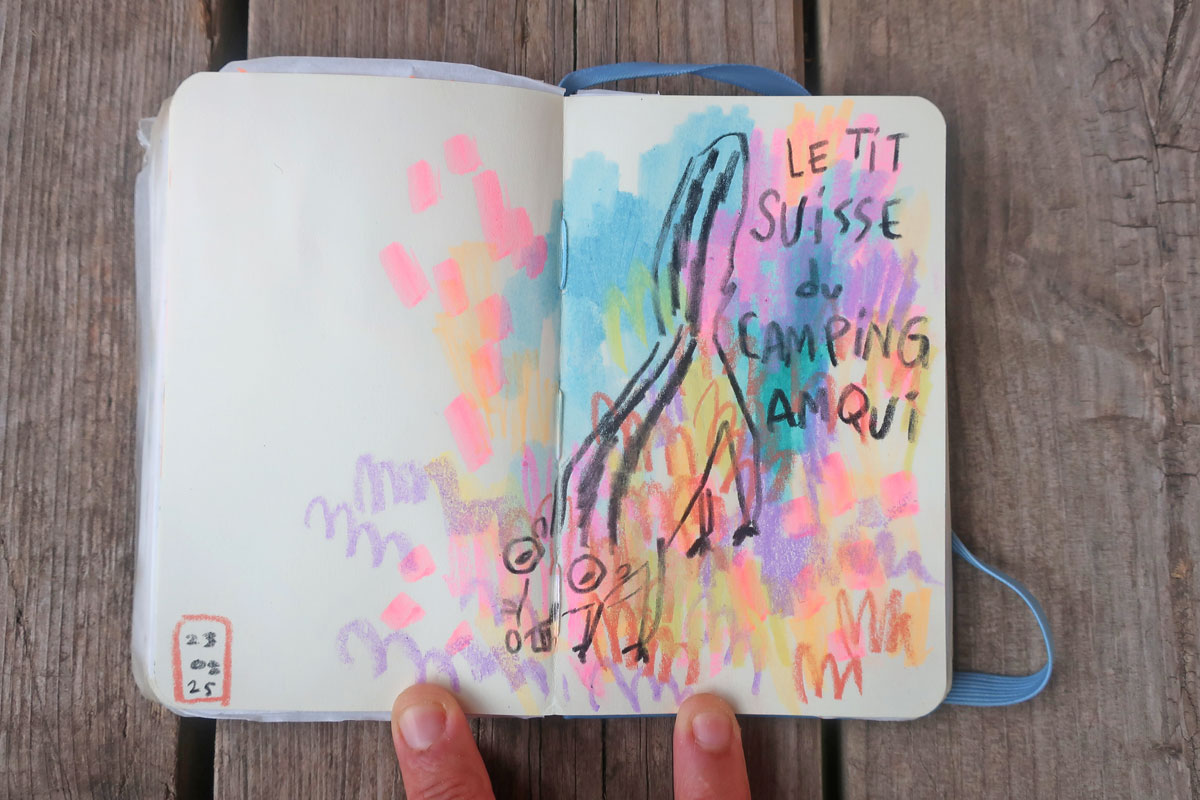 LE TIT
SUiSSE
du
CAMPiNG
AMQUi
23
08
25